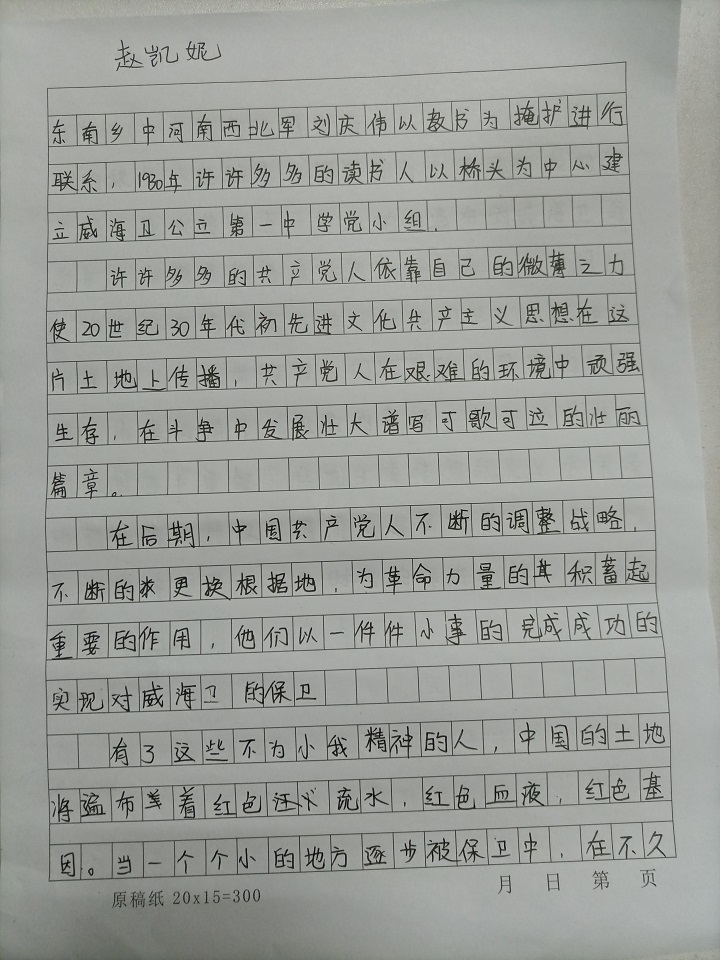 赵凯妮
东南乡中河南西北军刘庆伟以教书为掩护进行
联系，1930年许许多多的读书人以桥头为中心建
立威海卫公立第一中学党小组，
许许多多的共产党人依靠自己的微薄之力
使20世纪30年代初先进文化共产主义思想在这
片土地上传播，共产党人在艰难的环境中顽强
生存，在斗争中发展壮大谱写可歌可泣的壮丽
篇章。
在后期，中国共产党人不断的调整战略，
不断的更换根据地，为革命力量的积蓄起
重要的作用，他们以一件件小事的完成成功的
实现对威海卫的保卫
有了这些不为小我精神的人，中国的土地
将遍布着红色流水，红色血液，红色基
因。当一个个小的地方逐步被保卫中，在不久
原稿纸 20x15=300
月 日 第 页